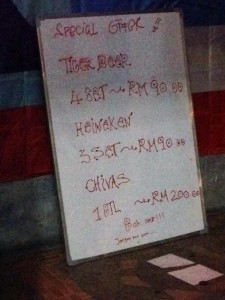 Special Offer !!
Tiger Beer
4 SET ~ RM 90.00
HEINEKEN
3 SET ~ RM 90.00
CHIVAS
1 BTL ~ RM 200.00